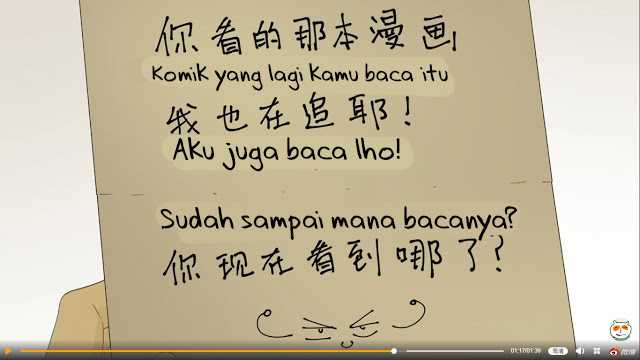 你看的那本漫画
Komik yang lagi kamu baca itu
我也在追耶!
Aku juga baca lho!
Sudah sampai mana bacanya?
你现在看到哪了?